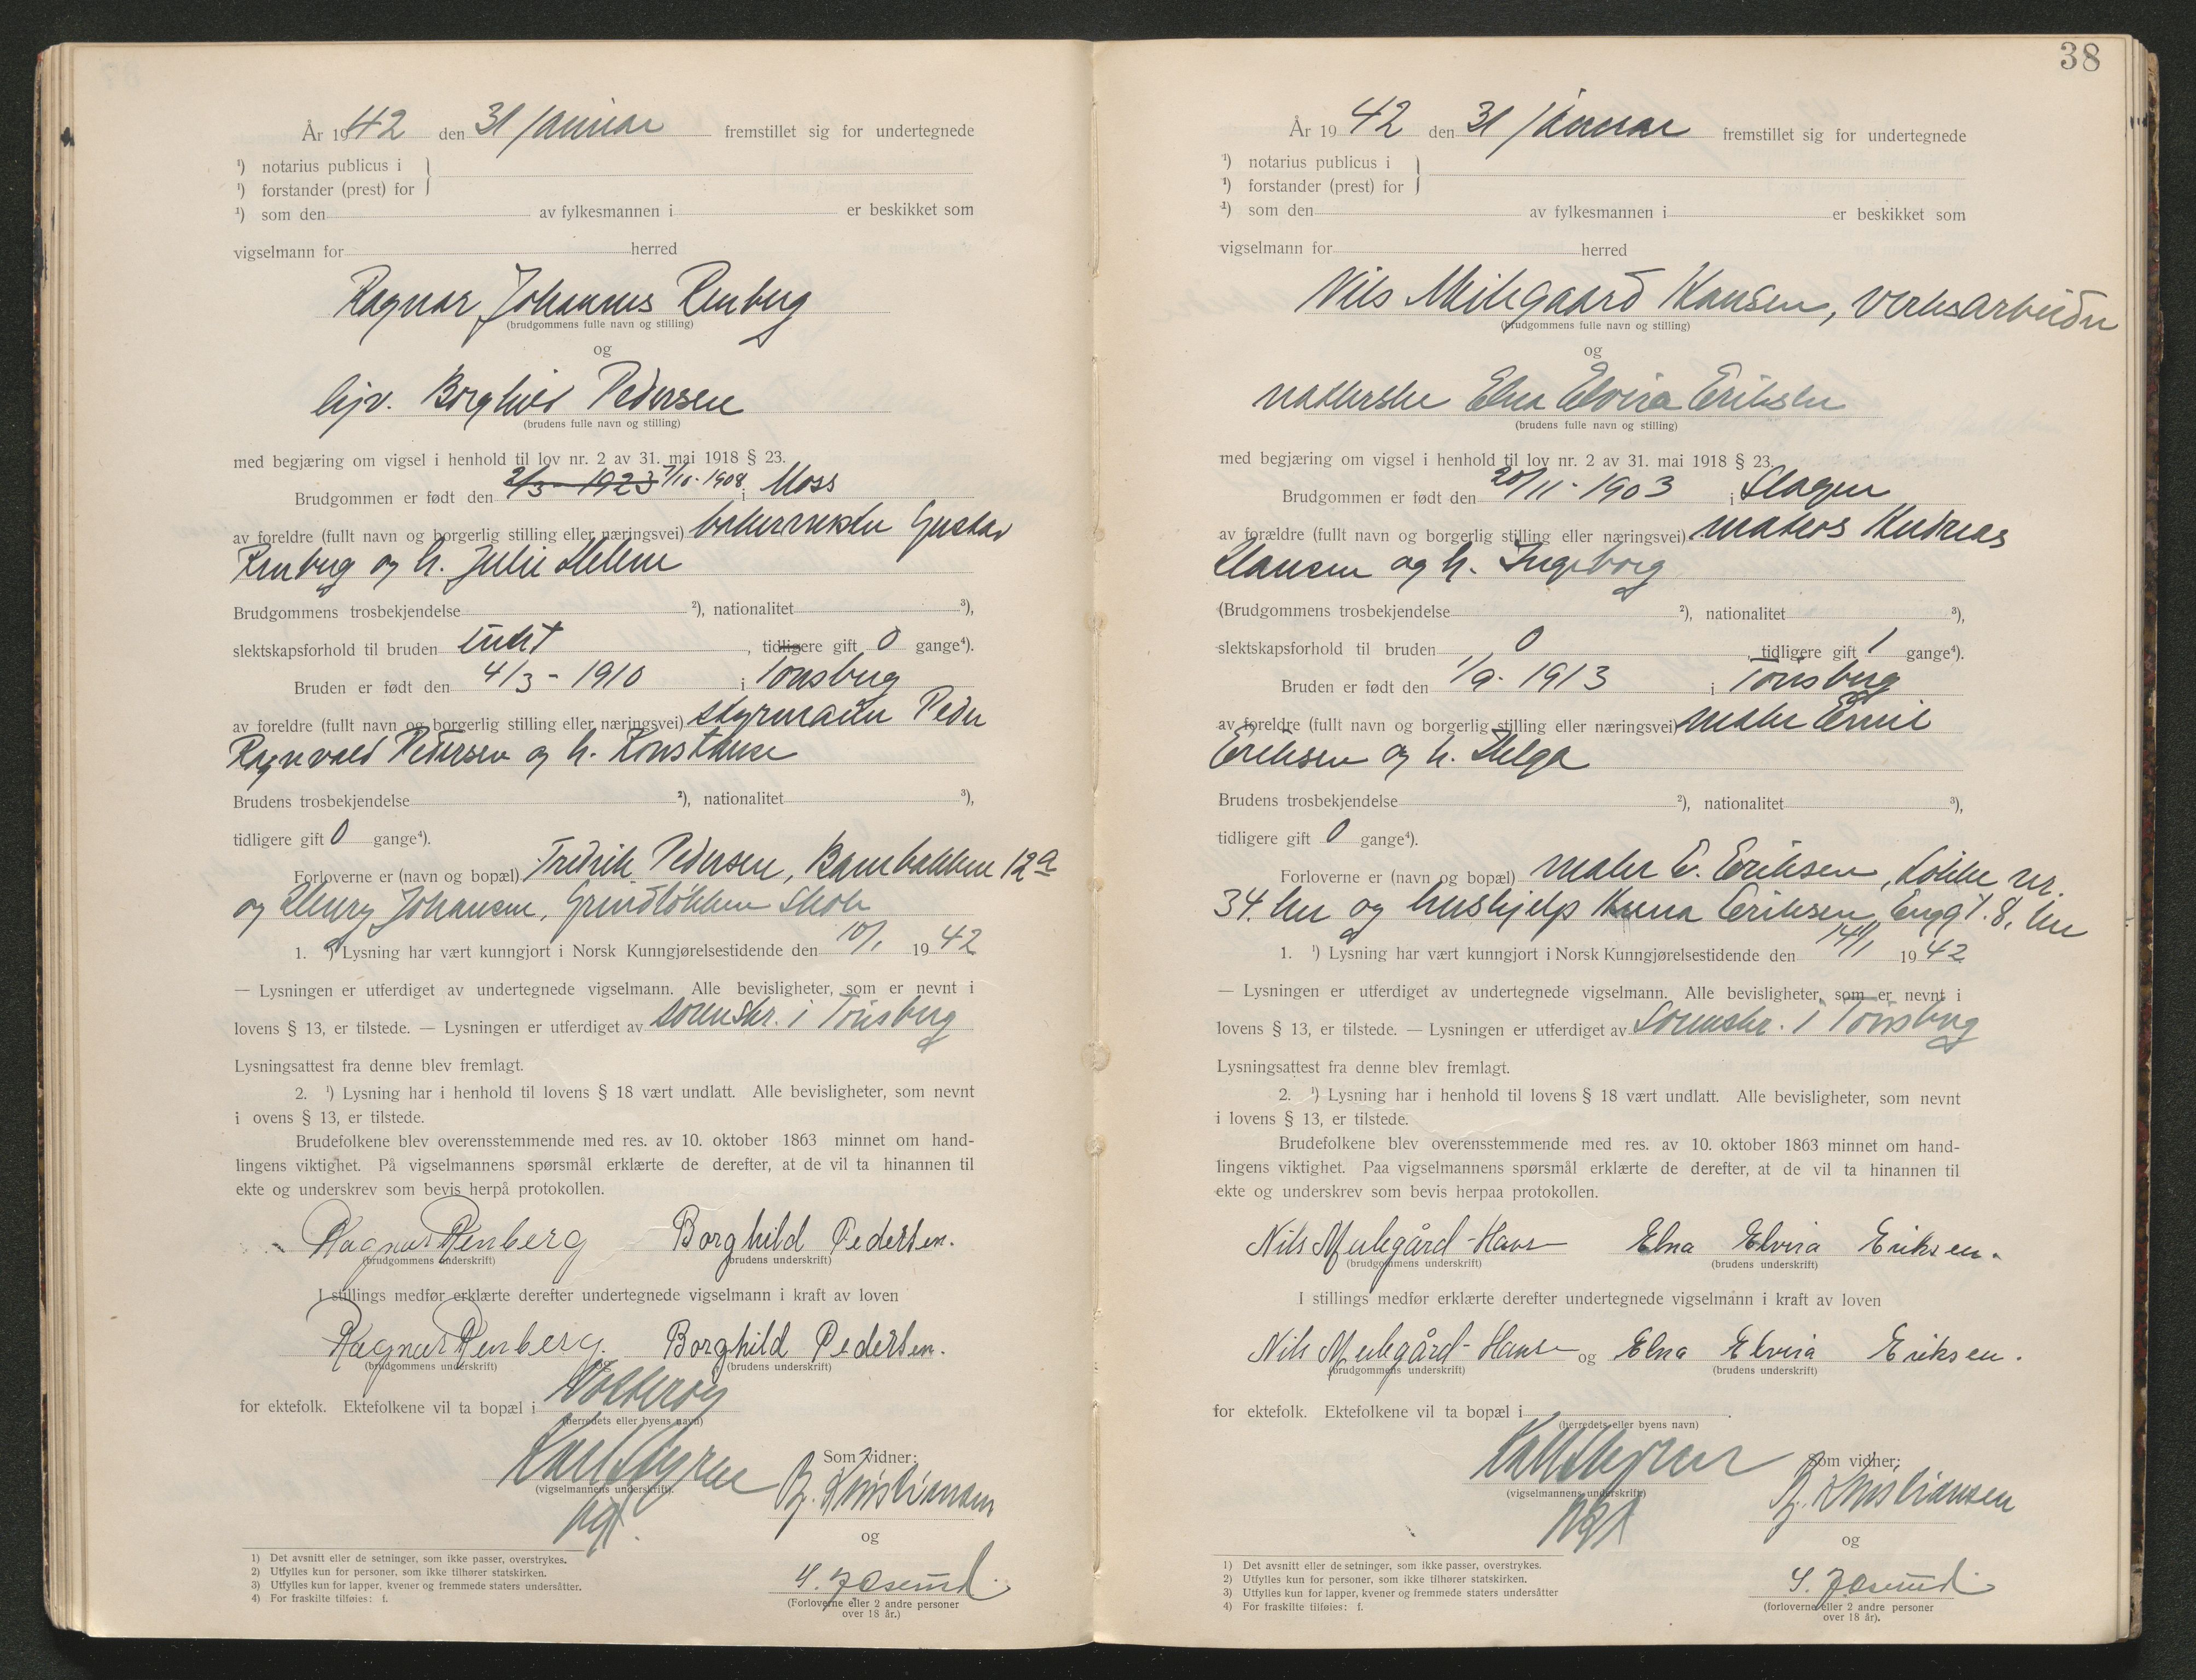 År 1942 den 31 januar fremstillet sig for undertegnede
¹) notarius publicus i
¹) forstander (prest) for
¹) som den av fylkesmannen i er beskikket som
vigselmann for herred
Ragnar Johannes Renberg
(brudgommens fulle navn og stilling)
og
hjv. Borghild Pedersen
(brudens fulle navn og stilling)
med begjæring om vigsel i henhold til lov nr. 2 av 31. mai 1918 § 23.
Brudgommen er født den 2/3 - 1923 7/10-1908 i Moss
av foreldre (fullt navn og borgerlig stilling eller næringsvei) bakermester Gustav
Renberg og h. Julie Helene
Brudgommens trosbekjendelse ²), nationalitet ³),
slektskapsforhold til bruden intet, tidligere gift 0 gange⁴).
Bruden er født den 4/3 - 1910 i Tønsberg
av foreldre (fullt navn og borgerlig stilling eller næringsvei) styrmann Peder
Ragnvald Pedersen og h. Konstanse
Brudens trosbekjendelse ²), nationalitet ³),
tidligere gift 0 gange⁴).
Forloverne er (navn og bopæl) Fredrik Pedersen, 12a
og Henry Johansen, Grindløkken Skole
1. ¹) Lysning har vært kunngjort i Norsk Kunngjørelsestidende den 10/1 1942
— Lysningen er utferdiget av undertegnede vigselmann. Alle bevisligheter, som er nevnt i
lovens § 13, er tilstede. — Lysningen er utferdiget av sorenskr. i Tønsberg
Lysningsattest fra denne blev fremlagt.
2. ¹) Lysning har i henhold til lovens § 18 vært undlatt. Alle bevisligheter, som nevnt
i ovens § 13, er tilstede.
Brudefolkene blev overensstemmende med res. av 10. oktober 1863 minnet om hand-
lingens viktighet. På vigselmannens spørsmål erklærte de derefter, at de vil ta hinannen til
ekte og underskrev som bevis herpå protokollen.
Ragnar Renberg Borghild Pedersen.
(brudgommens underskrift) (brudens underskrift)
I stillings medfør erklærte derefter undertegnede vigselmann i kraft av loven
Ragnar Renberg. Borghild Pedersen.
(brudgommens underskrift) (brudens underskrift)
for ektefolk. Ektefolkene vil ta bopæl i Nøtterøy
(herredets eller byens navn)
Som vidner:
(vigselmannens underskrift).
B. Kristiansen
og
(Forloverne eller 2 andre personer
over 18 år.)
1) Det avsnitt eller de setninger, som ikke passer, overstrykes.
2) Utfylles kun for personer, som ikke tilhører statskirken.
3) Utfylles kun for lapper, kvener og fremmede staters undersåtter.
4) For fraskilte tilføies: f.
38
År 1942 den 31 januar fremstillet sig for undertegnede
¹) notarius publicus i
¹) forstander (prest) for
¹) som den av fylkesmannen i er beskikket som
vigselmann for herred
Nils Milegaard Hansen, verksarbeider
(brudgommens fulle navn og stilling)
og
Elna Elvira Eriksen
(brudens fulle navn og stilling)
med begjæring om vigsel i henhold til lov nr. 2 av 31. mai 1918 § 23.
Brudgommen er født den 20/11-1903 i Slagen
av forældre (fullt navn og borgerlig stilling eller næringsvei) matros Andreas
Hansen og h. Ingeborg
(Brudgommens trosbekjendelse ²), nationalitet ³),
slektskapsforhold til bruden 0, tidligere gift 1 gange⁴).
Bruden er født den 1/9-1913 i Tønsberg
av foreldre (fullt navn og borgerlig stilling eller næringsvei) maler Emil
Eriksen og h. Helga
Brudens trosbekjendelse ²), nationalitet ³),
tidligere gift 0 gange⁴).
Forloverne er (navn og bopæl) maler E. Eriksen, Løkke nr.
34. her og hushjelp Anna Eriksen, Engg. 8. her
1. ¹) Lysning har vært kunngjort i Norsk Kunngjørelsestidende den 14/1 1942
— Lysningen er utferdiget av undertegnede vigselmann. Alle bevisligheter, som er nevnt i
lovens § 13, er tilstede. — Lysningen er utferdiget av Sorenskr. i Tønsberg
Lysningsattest fra denne blev fremlagt.
2. ¹) Lysning har i henhold til lovens § 18 vært undlatt. Alle bevisligheter, som nevnt
i lovens § 13, er tilstede.
Brudefolkene blev overensstemmende med res. av 10. oktober 1863 minnet om hand-
lingens viktighet. Paa vigselmannens spørsmål erklærte de derefter, at de vil ta hinannen til
ekte og underskrev som bevis herpaa protokollen.
Nils Milegård-Hansen Elna Elvira Eriksen.
(brudgommens underskrift) (brudens underskrift)
I stillings medfør erklærte derefter undertegnede vigselmann i kraft av loven
Nils Milegård-Hansen og Elna Elvira Eriksen.
(brudgommens underskrift) (brudens underskrift)
for ektefolk. Ektefolkene vil ta bopæl i .
(herredets eller byens navn)
Som vidner:
(vigselmannens underskrift)
B. Kristiansen
og
(forloverne eller 2 andre personer
over 18 år).
1) Det avsnitt eller de setninger, som ikke passer, overstrykes.
2) Utfylles kun for personer, som ikke tilhører statskirken.
3) Utfylles kun for lapper, kvener og fremmede staters undersåtter
4) For fraskilte tilføies: f.